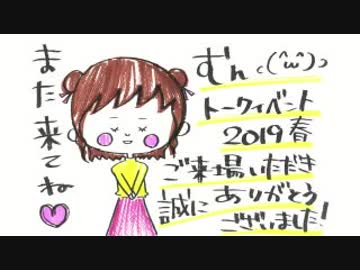 また来てね
むん ⊂(^ω^)⊃
トークイベント
2019春
ご来場いただき
誠にありがとう
ございました!